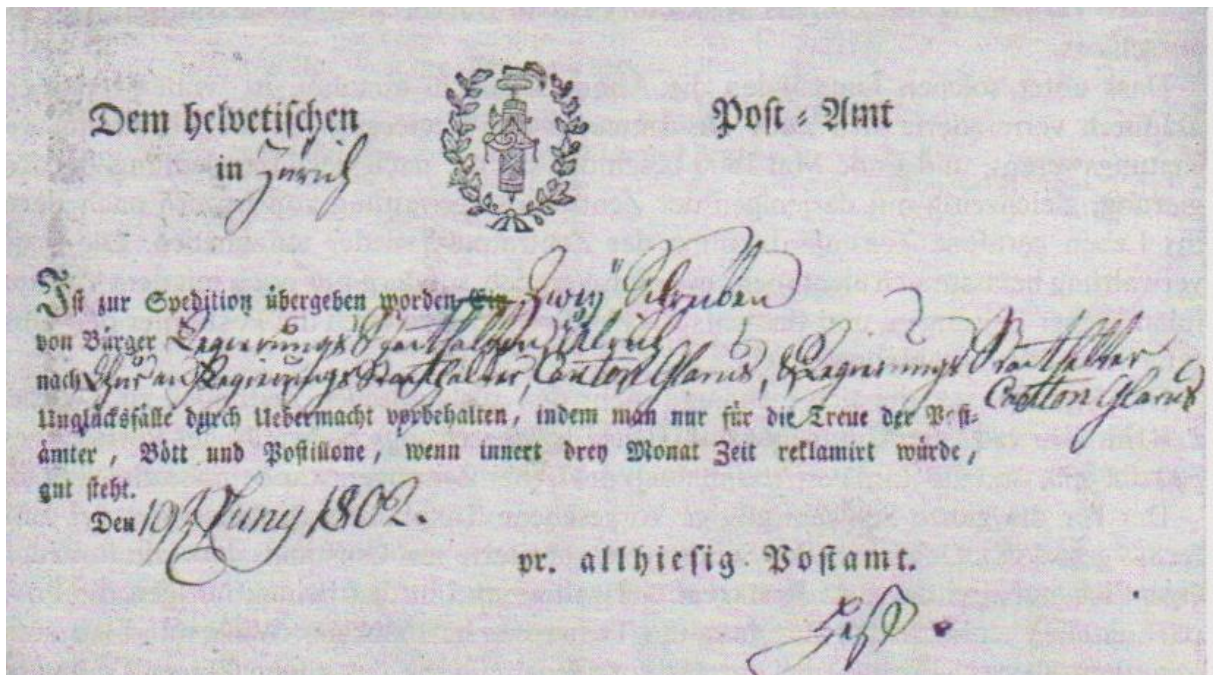 Dem helvetischen Post-Amt
in Zürich
Ist zur Spedition übergeben worden Ein Zwey Schreiben
von Bürger Regierungs Statthalter Ulrich
nach an Regierungs Statthalter, Canton Glarus, Regierungs Statthalter
Canton Glarus
Unglücksfälle durch Uebermacht vorbehalten, indem man nur für die Treue der Post-
ämter, Bött und Postillone, wenn innert drey Monat Zeit reklamirt würde,
gut steht.
Den 10. Juny 1802.
pr. allhiesig Postamt.